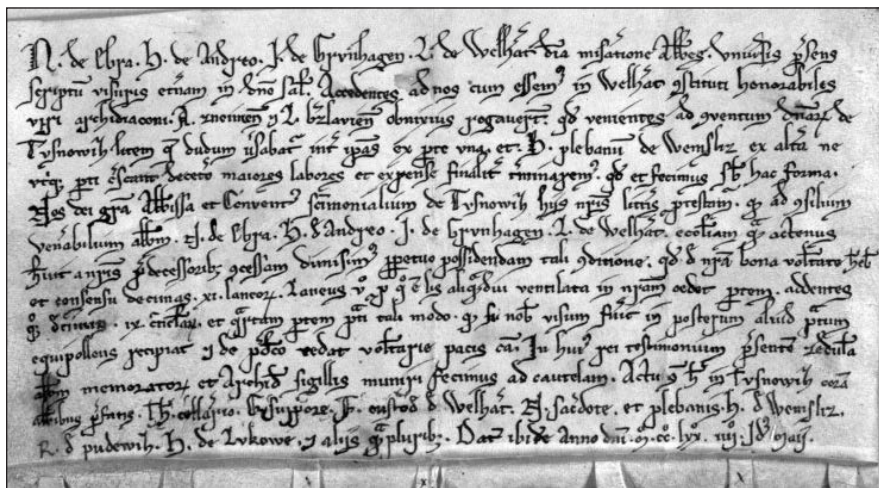 N. de Ebra. H. de Andreo. J. de Grvnhagen. L. de Welhat. dīa misatione Abbes. vniusis psens
scriptū visuris etnam in dno sal. Accedentes ad nos cum essem⁹ in Welhat ꝯstituti honorabiles
viri archidiaconi. A. zneimen ⁊ L. bzlavien obnixius rogauert. qd venientes ad ꝯventum dnaꝝ de
Tysnowih litem q dudum vsabat int ipas ex pte vna. et. H. plebanum de Wemsliz ex alta ne
pti cscant deceto maiores labores et expense finalit tminarem⁹. qd et fecimus sb hac forma.
Nos dei gra Abbissa et Convent⁹ sctimonialium de Tysnowih hys nris litis ptestam. qd ad ꝯsilium
venabilium abbm. N. de Ebra. H. d Andreo. J. de Grvnhagen. L. de Welhat. eccliam qm actenus
huit a nris pdecessorib⁹ ꝯcessam dimisim⁹ ppetuo possidendam tali ꝯditione. qd d nra bona voltate
et consensu decimas. xi. laneoꝝ. Laneus v° p q° e lis aliqdiu ventilata in nram cedet ptem. addentes
ix. et qrtam ptem pti tali modo. qd si nob visum fuit in posterum aliud ptum
equipollens recipiat ⁊ de pdco cedat voltarie pacis ca. In hui⁹ rei testimonium psentē cedula
abbm memoratoꝝ et Archid sigillis muniri fecimus ad cautelam. Actū s h in Tysnowih corā
abbibus pfatis. Th. cellario. Svppore. F. custod d Welhat. N. sacdote. et plebanis. h. d Wemsliz.
R. d pudewih. H. de Lvkowe. ⁊ aliis qm plurib⁹. Dat ibide Anno dni. m°. cc°. lxx°. iiii°. Id maii.